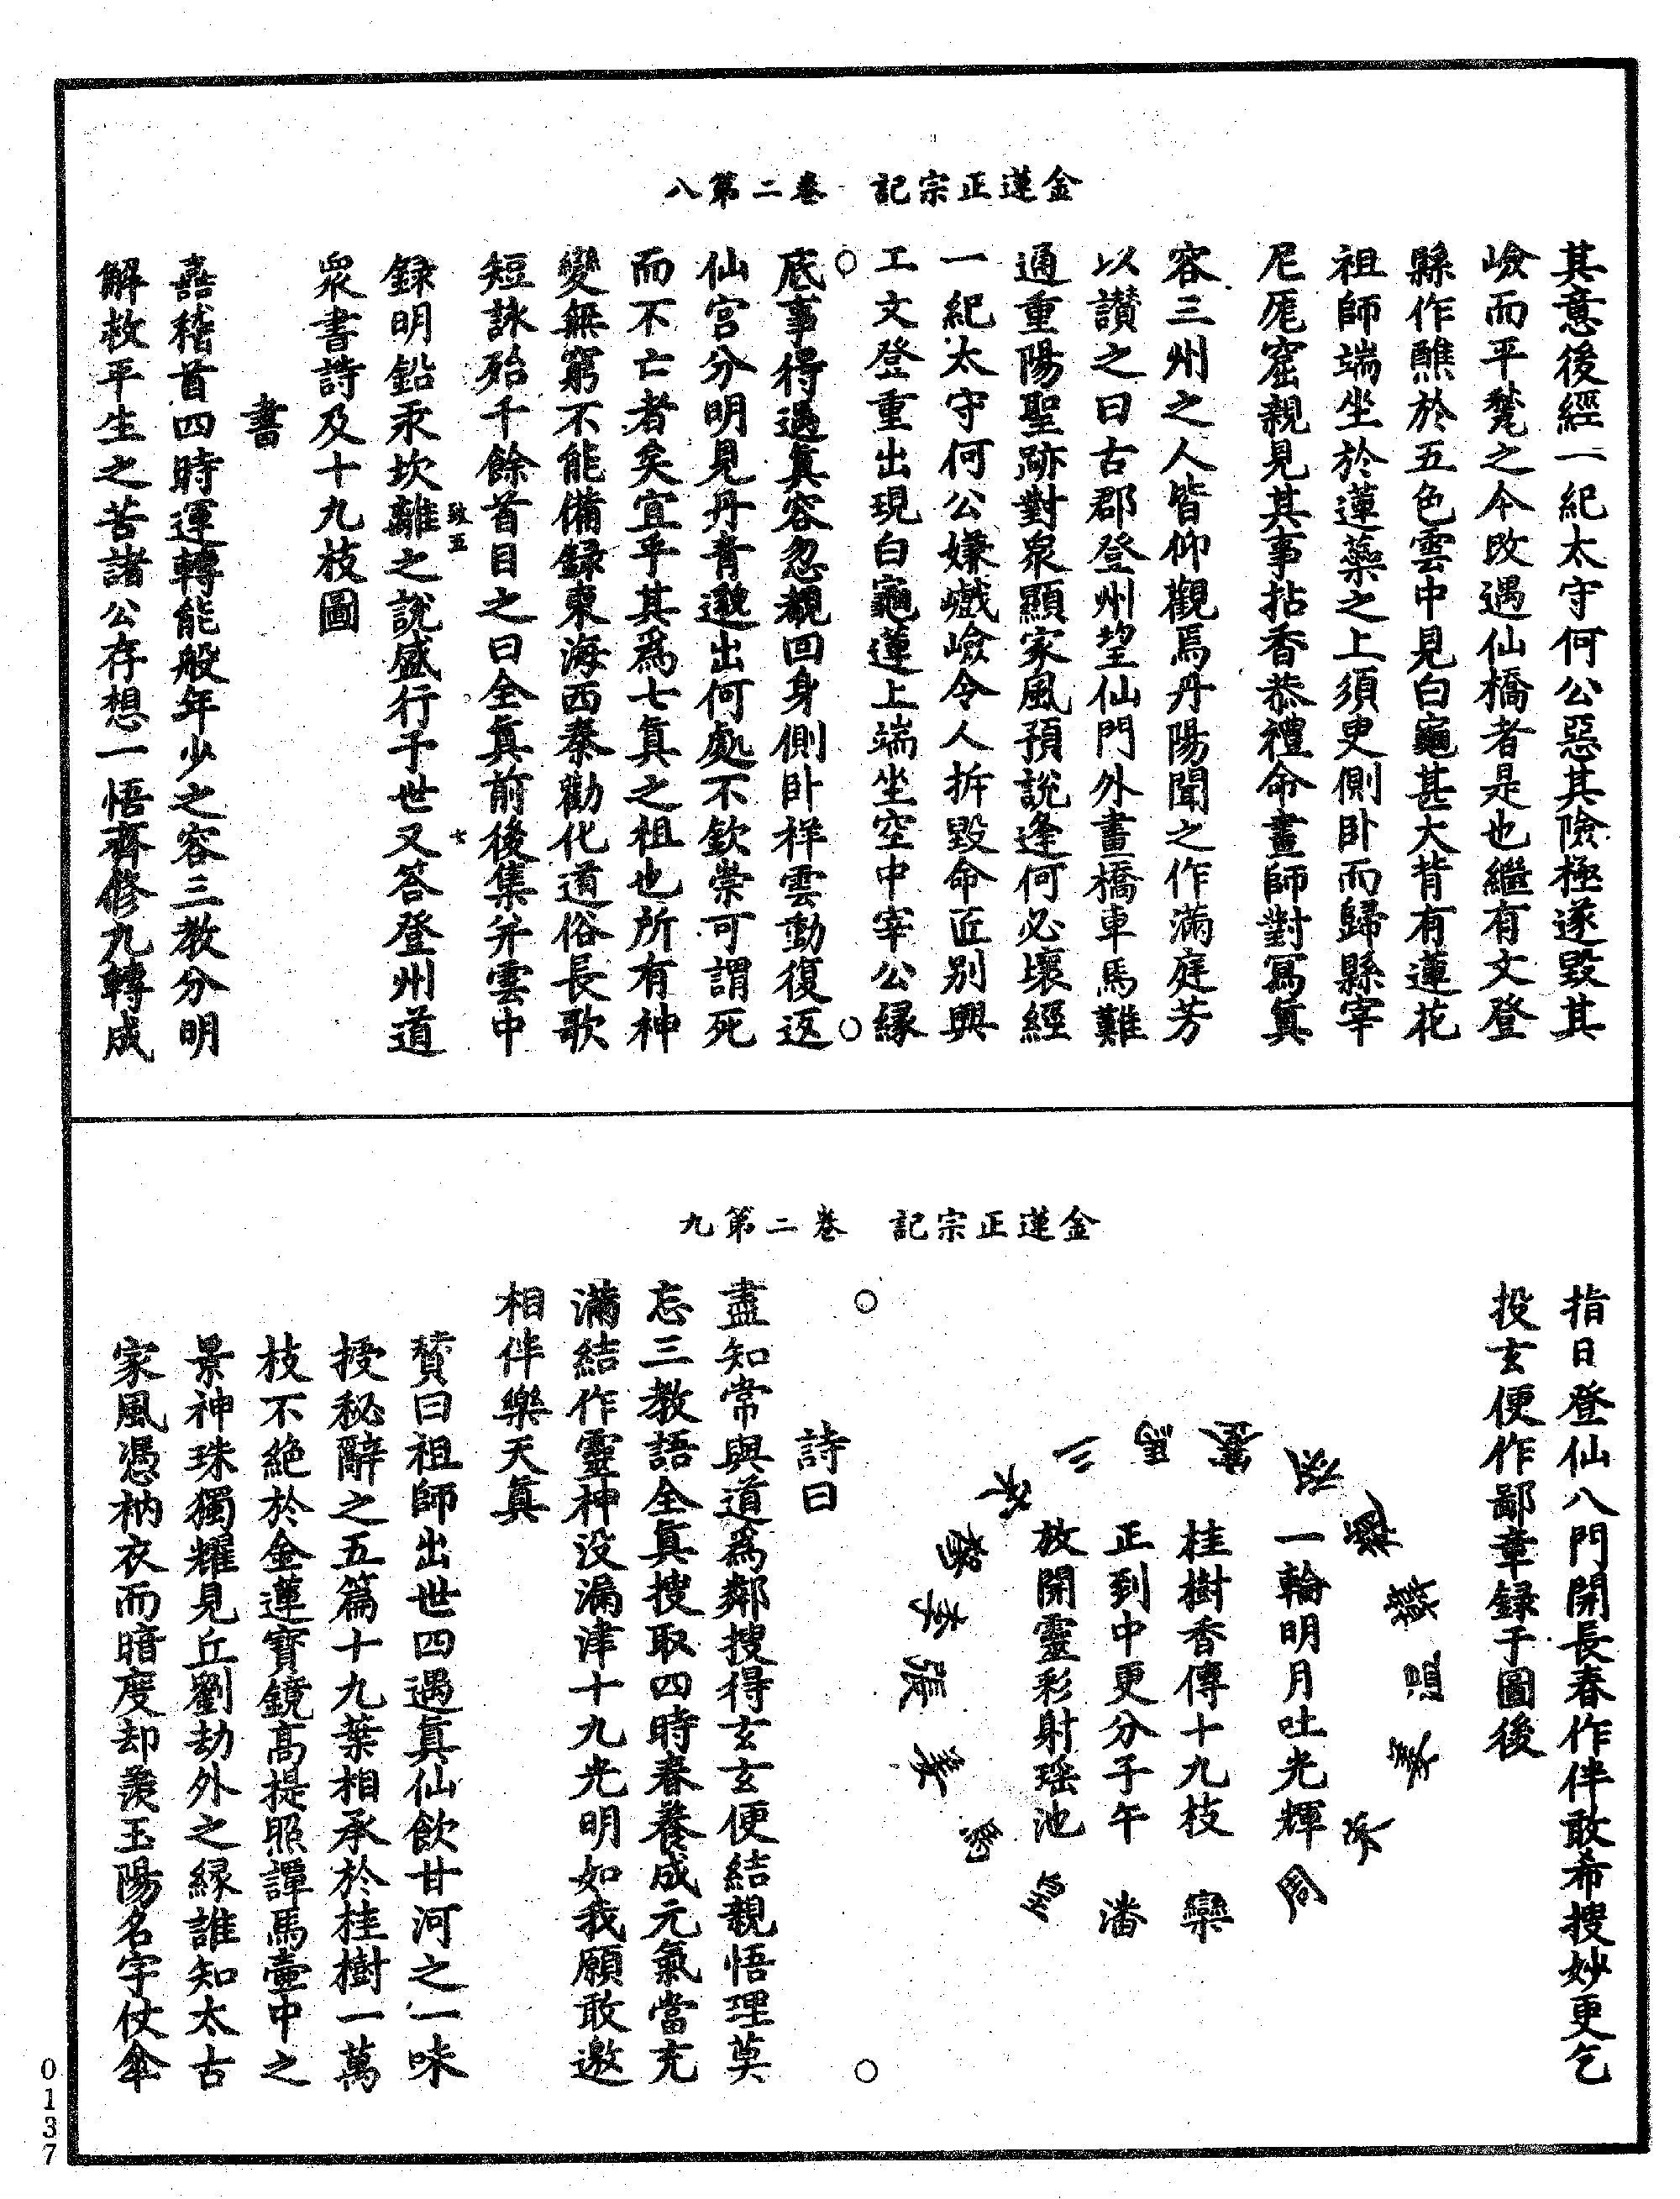 金蓮正宗記　卷二第八
其意後經一紀太守何公惡其險極遂毀其
嶮而平甃之今改遇仙橋者是也繼有文登
縣作醮於五色雲中見白龜甚大背有蓮花
祖師端坐於蓮蘂之上須臾側卧而歸縣宰
尼厖窟親見其事拈香恭禮命畫師對寫眞
容三州之人皆仰觀焉丹陽聞之作滿庭芳
以讃之曰古郡登州望仙門外畫橋車馬難
通重陽聖跡對衆顯家風預說逢何必壞經
一紀太守何公嫌巇嶮令人拆毀命匠別興
工文登重出現白龜蓮上端坐空中宰公緣
底事得遇眞容忽覩回身側卧祥雲動復返
仙宫分明見丹青邈出何處不欽崇可謂死
而不亡者矣宜乎其爲七眞之祖也所有神
變無窮不能備録東海西秦勸化道俗長歌
短詠殆千餘首目之曰全眞前後集并雲中
致五　七
録明鉛汞坎離之說盛行于世又答登州道
衆書詩及十九枝圖
書
嚞稽首四時運轉能般年少之容三教分明
解救平生之苦諸公存想一悟齊修九轉成
金蓮正宗記　卷二第九
指日登仙八門開長春作伴敢希搜妙更乞
投玄便作鄙章録于圖後
一輪明月吐光輝
桂樹香傳十九枝
正到中更分子午
放開靈彩射瑶池
周
欒
潘
三
李
張
姜
馬
詩曰
盡知常與道爲鄰搜得玄玄便結親悟理莫
忘三教語全眞搜取四時春養成元氣當充
滿結作靈神没漏津十九光明如我願敢邀
相伴樂天眞
賛曰祖師出世四遇眞仙飲甘河之一味
授秘辭之五篇十九葉相承於桂樹一萬
枝不絶於金蓮寳鏡高提照譚馬壷中之
景神珠獨耀見丘劉劫外之緣誰知太古
家風慿衲衣而暗度却羨玉陽名字仗傘
0137